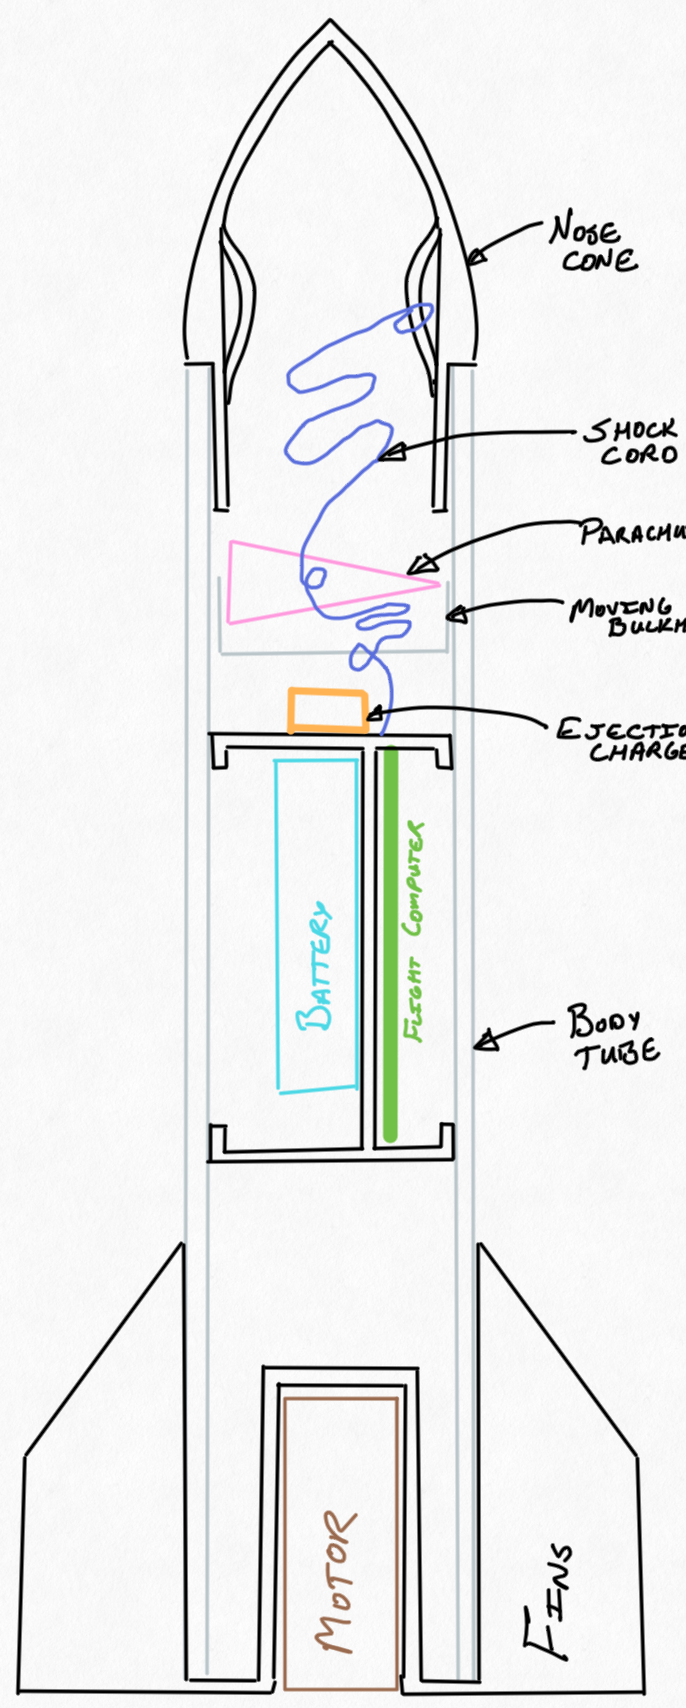 NOSE
CONE
SHOCK
CORD
PARACHU
MOVING
BULKH
EJECTIO
CHARGE
BATTERY
FLIGHT COMPUTER
BODY
TUBE
MOTOR
FINS